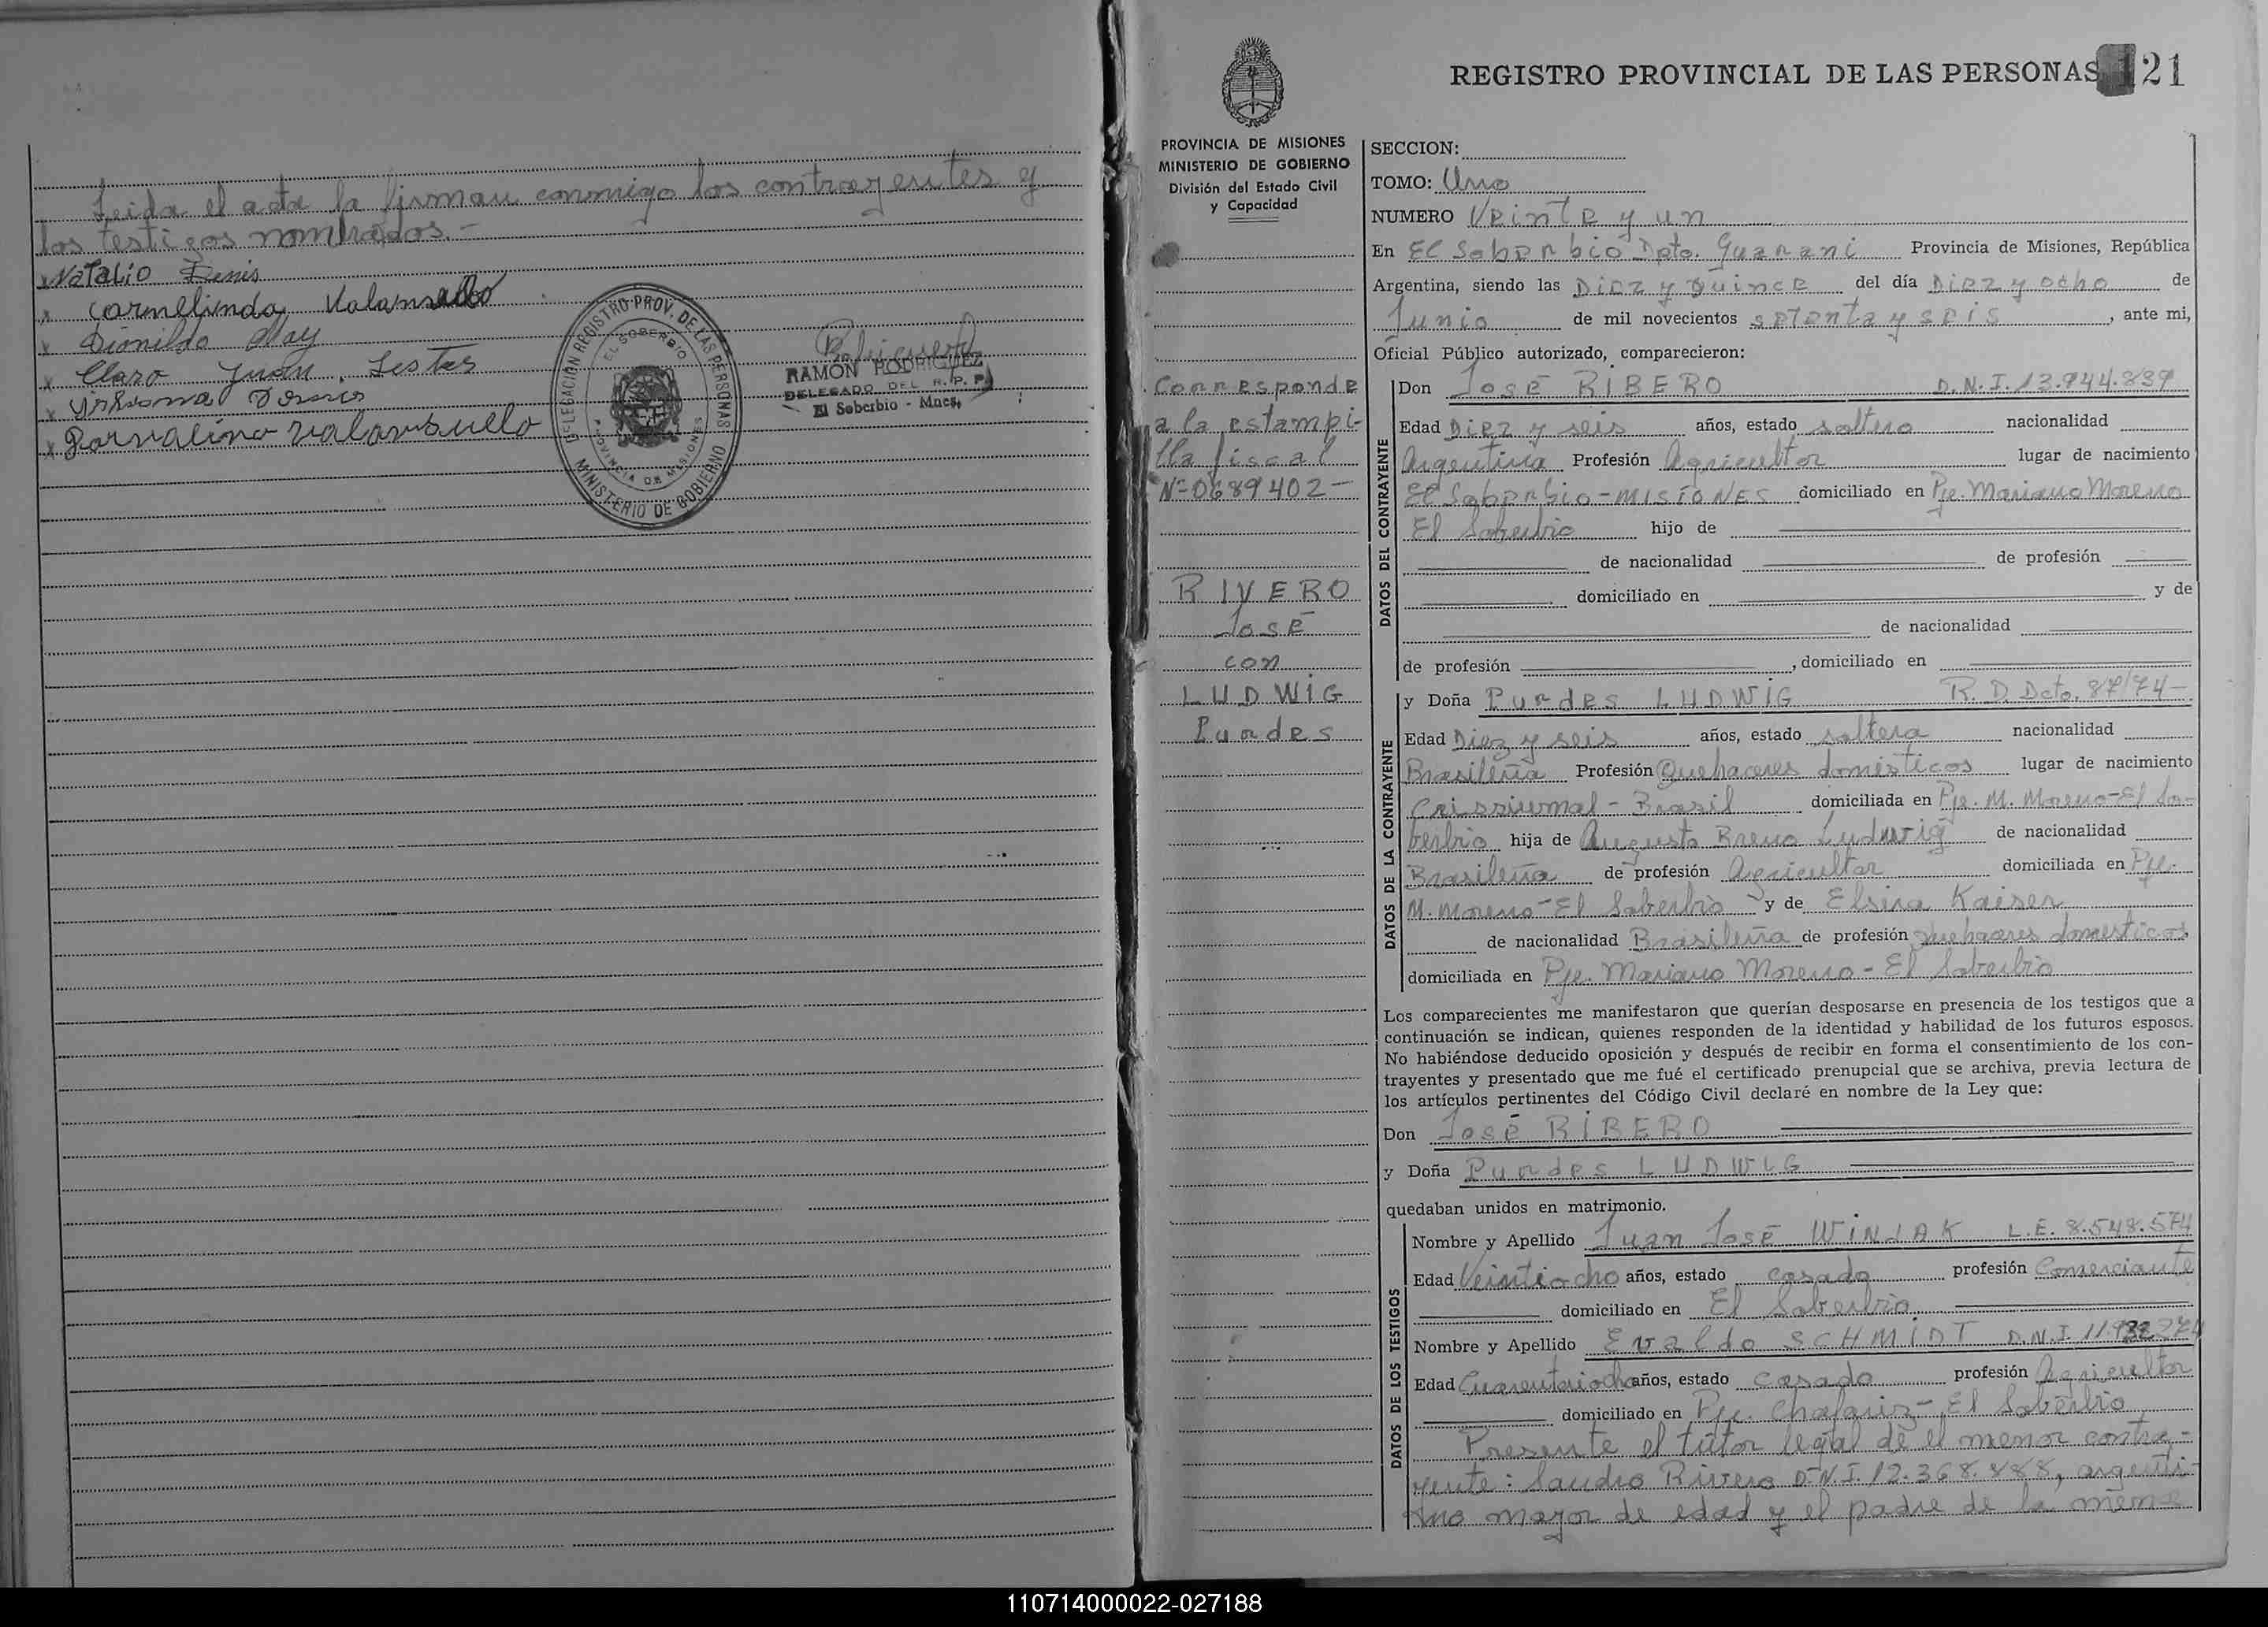 Leida el acta la firman conmigo los contrayentes y
los testigos nombrados.-
x Natalio
x Carmelinda
x Dionildo
x Claro Juan
x
x valansuello
DELEGACION REGISTRO PROV. DE LAS PERSONAS
EL SOBERBIO
PROVINCIA DE MISIONES
MINISTERIO DE GOBIERNO
RAMON RODRIGUEZ
DELEGADO DEL R. P. P.
El Soberbio - Mnes.
REGISTRO PROVINCIAL DE LAS PERSONAS 121
PROVINCIA DE MISIONES
MINISTERIO DE GOBIERNO
División del Estado Civil
y Capacidad
Corresponde
a la estampi-
lla fiscal
Nº 0689402-
RIVERO
José
con
LUDWIG
Lurdes
SECCION:
TOMO: Uno
NUMERO Veinte y un
En El Soberbio Dpto. Guarani Provincia de Misiones, República
Argentina, siendo las Diez y Quince del día Diez y ocho de
Junio de mil novecientos setenta y seis, ante mi,
Oficial Público autorizado, comparecieron:
DATOS DEL CONTRAYENTE
Don José RIBERO D.N.I. 13.944.839
Edad Diez y seis años, estado soltero nacionalidad
Argentina Profesión Agricultor lugar de nacimiento
El Soberbio-MISIONES domiciliado en Pje. Mariano Moreno
El Soberbio hijo de
de nacionalidad de profesión
domiciliado en y de
de nacionalidad
de profesión , domiciliado en
DATOS DE LA CONTRAYENTE
y Doña Lurdes LUDWIG R.D. Dcto. 87/74-
Edad Diez y seis años, estado soltera nacionalidad
Brasileña Profesión Quehaceres domésticos lugar de nacimiento
Crissiumal - Brasil domiciliada en Pje. M. Moreno-El So-
berbio hija de Augusto Breno Ludwig de nacionalidad
Brasileña de profesión Agricultor domiciliada en Pje.
M. Moreno-El Soberbio y de Elsira Kaiser
de nacionalidad Brasileña de profesión quehaceres domesticos
domiciliada en Pje. Mariano Moreno - El Soberbio
Los comparecientes me manifestaron que querían desposarse en presencia de los testigos que a
continuación se indican, quienes responden de la identidad y habilidad de los futuros esposos.
No habiéndose deducido oposición y después de recibir en forma el consentimiento de los con-
trayentes y presentado que me fué el certificado prenupcial que se archiva, previa lectura de
los artículos pertinentes del Código Civil declaré en nombre de la Ley que:
Don José RIBERO
y Doña Lurdes LUDWIG
quedaban unidos en matrimonio.
DATOS DE LOS TESTIGOS
Nombre y Apellido Juan José WINLAK L.E. 8.548.574
Edad Veintiocho años, estado casado profesión Comerciante
domiciliado en El Soberbio
Nombre y Apellido Evaldo SCHMIDT D.N.I.
Edad Cuarentaiocho años, estado casado profesión Agricultor
domiciliado en Pje. Chafariz- El Soberbio
Presente el tutor legal de el menor contra-
yente: Sandro Rivero D.N.I. 12.368.888, argenti-
no mayor de edad y el padre de la meno
110714000022-027188